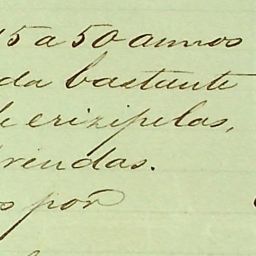 45 a 50 annos
da bastante
de erizipelas,
rendas.
s por